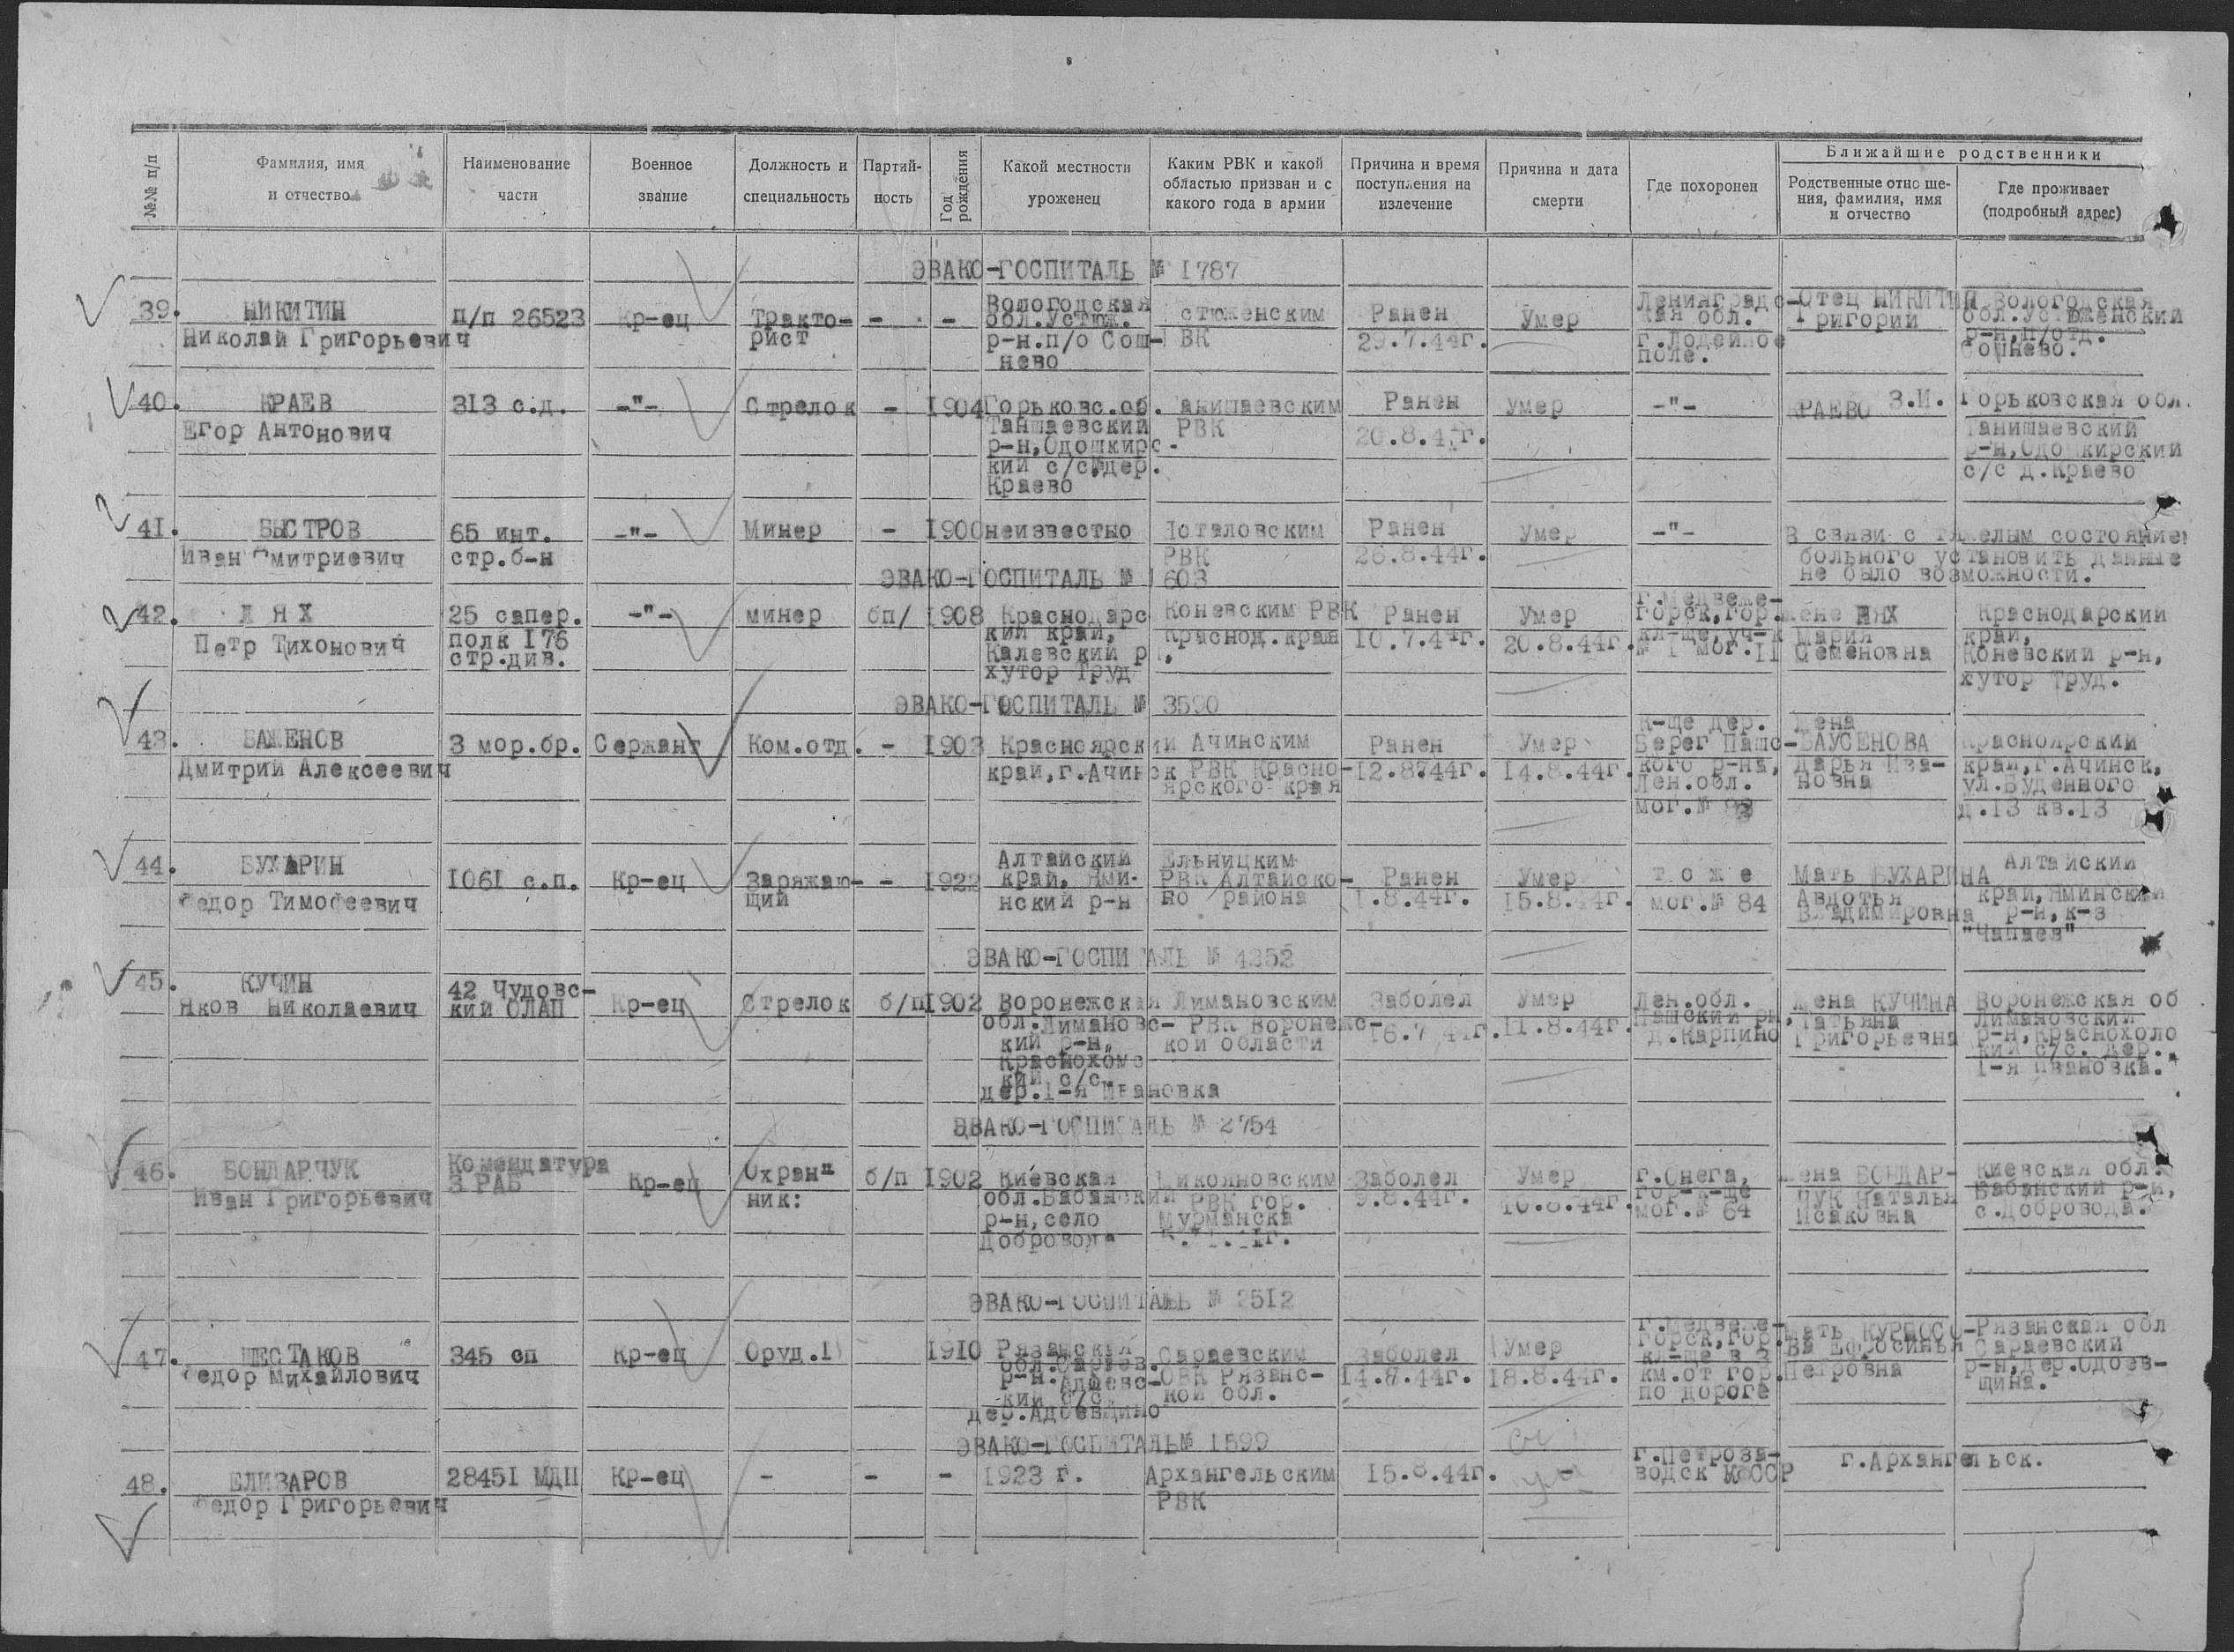 №№ п/п
Фамилия, имя
и отчество
Наименование
части
Военное
звание
Должность и
специальность
Партий-
ность
Год
рождения
Какой местности
уроженец
Каким РВК и какой
областью призван и с
какого года в армии
Причина и время
поступления на
излечение
Причина и дата
смерти
Где похоронен
Ближайшие родственники
Родственные отноше-
ния, фамилия, имя
и отчество
Где проживает
(подробный адрес)
ЭВАКО-ГОСПИТАЛЬ № 1787
39.
НИКИТИН
Николай Григорьевич
п/п 26523
Кр-ец
Тракто-
рист
-
-
Вологодская
обл.Устюж.
р-н.п/о Сош-
нево
стюженским
ВК
Ранен
29.7.44г.
Умер
Ленинградс-
кая обл.
г.Лодейное
поле.
Отец НИКИТИН
Григорий
Вологодская
обл.Устюженский
р-н,п/отд.
Сошнево.
40.
КРАЕВ
Егор Антонович
313 с.д.
-"-
Стрелок
-
1904
Горьковс.об.
Таншаевский
р-н,Одошкирс-
кий с/с дер.
Краево
анишаевским
РВК
Ранен
20.8.4 г.
умер
-"-
КРАЕВО З.И.
Горьковская обл.
Танишаевский
р-н,Одошкирский
с/с д.Краево
41.
БЫСТРОВ
Иван Дмитриевич
65 инт.
стр.б-н
-"-
Минер
-
1900
неизвестно
Поталовским
РВК
Ранен
26.8.44г.
Умер
-"-
В связи с тяжелым состоянием
больного установить данные
не было возможности.
ЭВАКО-ГОСПИТАЛЬ № 1603
42.
Л Я Х
Петр Тихонович
25 сапер.
полк 176
стр.див.
-"-
минер
бп/
1908
Краснодарс
кий край,
Калевский р
хутор Труд
Коневским РВК
Краснод.края
Ранен
10.7.44г.
Умер
20.8.44г.
г.Медвеже-
горск,гор.
кл-ще,уч-к
№ 1 мог.11
жене ЛЯХ
Мария
Семеновна
Краснодарский
край,
Коневский р-н,
хутор Труд.
ЭВАКО-ГОСПИТАЛЬ № 3590
43.
БАЖЕНОВ
Дмитрий Алексеевич
3 мор.бр.
Сержант
Ком.отд.
-
1903
Красноярский
край,г.Ачинск
Ачинским
РВК Красно-
ярского края
Ранен
12.8744г.
Умер
14.8.44г.
к-ще дер.
Берег Пашс-
кого р-на,
Лен.обл.
мог.№
Жена
БАУСЕНОВА
Дарья Ива-
новна
Красноярский
край,г.Ачинск,
ул.Буденного
д.13 кв.13
44.
БУХАРИН
Федор Тимофеевич
1061 с.п.
Кр-ец
Заряжаю-
щий
-
1922
Алтайский
край, Ями-
нский р-н
Ельницким
РВК Алтайско-
го района
Ранен
1.8.44г.
Умер
15.8.44г.
т о ж е
мог.№ 84
Мать БУХАРИНА
Авдотья
Владимировна
Алтайский
край,Яминский
р-н,к-з
"Чапаев"
ЭВАКО-ГОСПИТАЛЬ № 4352
45.
КУЧИН
Яков Николаевич
42 Чудовс-
кий ОЛАП
Кр-ец
Стрелок
б/п
1902
Воронежская
обл.Лимановс-
кий р-н,
Краснохомс
кий с/с.
дер.1-я Ивановка
Лимановским
РВК Воронежс-
кой области
Заболел
16.7.44г.
Умер
11.8.44г.
Лен.обл.
Пашский рн,
д.Карпино
Жена КУЧИНА
Татьяна
Григорьевна
Воронежская об
Лимановский
р-н,Краснохоло
кий с/с. дер.
1-я Ивановка.
ЭВАКО-ГОСПИТАЛЬ № 2754
46.
БОНДАРЧУК
Иван Григорьевич
Комендатура
3 РАБ
Кр-ец
Охран-
ник:
б/п
1902
Киевская
обл.Бабанский
р-н,село
Добровода
Микояновским
РВК гор.
Мурманска
Заболел
9.8.44г.
Умер
10.8.44г.
г.Онега,
гор-к-ще
мог.№ 64
Жена БОНДАР-
ЧУК Наталья
Исаковна
Киевская обл.
Бабанский р-н,
с.Добровода.
ЭВАКО-ГОСПИТАЛЬ № 2512
47.
ШЕСТАКОВ
Федор Михайлович
345 сп
Кр-ец
Оруд.
1910
Рязанская
обл.Сараев.
р-н.Адоевс-
кий с/с.
дер.Адоевщино
Сараевским
ОВК Рязанс-
кой обл.
Заболел
14.8.44г.
Умер
18.8.44г.
г.Медвеже-
горск,гор.
кл-ще в 3
км.от гор.
по дороге
Мать КУРНОСО-
ВА Ефросинья
Петровна
Рязанская обл
Сараевский
р-н,дер.Одоев-
щина.
ЭВАКО-ГОСПИТАЛЬ№ 1599
48.
ЕЛИЗАРОВ
Федор Григорьевич
28451 МДП
Кр-ец
-
-
-
1923 г.
Архангельским
РВК
15.8.44г.
-
г.Петроза-
водск КФССР
г.Архангельск.